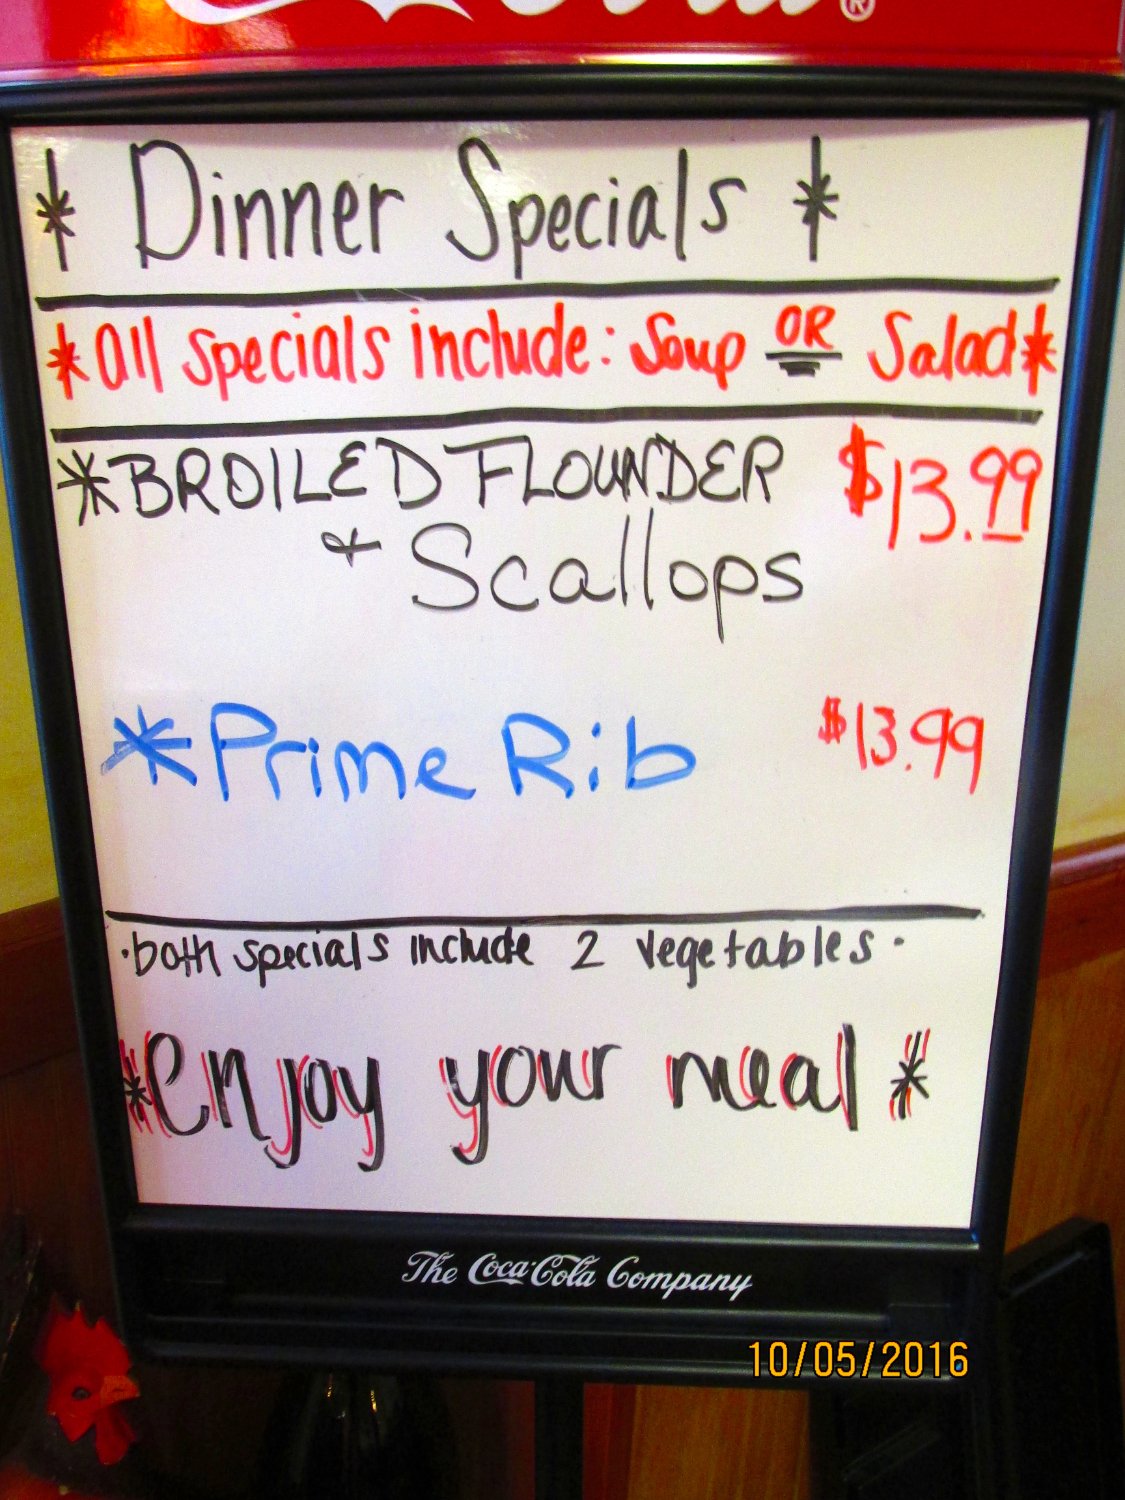 * Dinner Specials *
*all specials include: Soup OR Salad*
*BROILED FLOUNDER $13.99
& Scallops
*Prime Rib $13.99
·both specials include 2 vegetables·
*enjoy your meal*
The Coca-Cola Company
10/05/2016